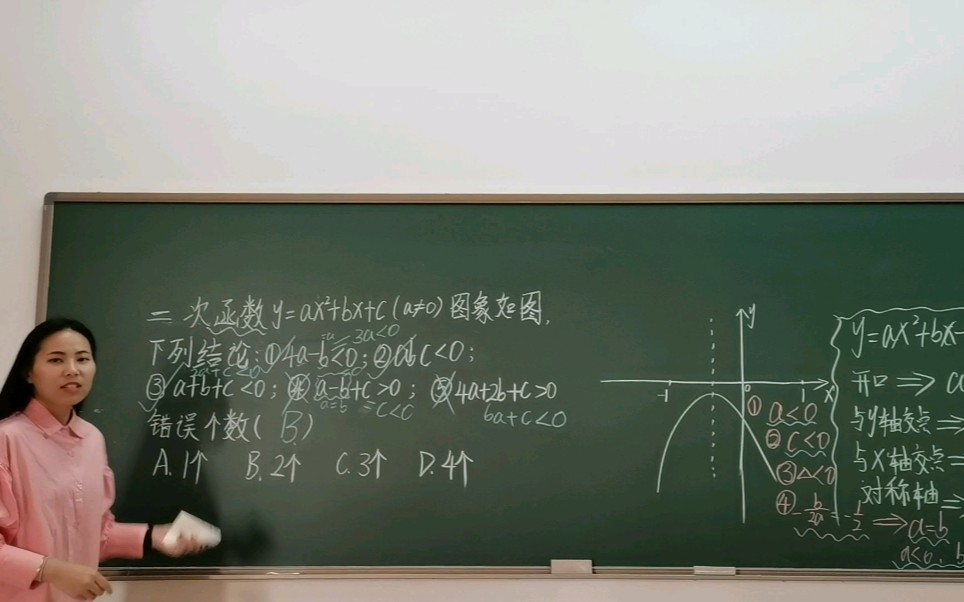 二次函数y=ax²+bx+c(a≠0)图象如图,
=3a<0
下列结论:①4a-b<0;②abc<0;
③a+b+c<0;④a-b+c>0;⑤4a+2b+c>0
a=b =c<0 6a+c<0
错误个数(B)
A.1个 B.2个 C.3个 D.4个
y
-1 0 1 x
①a<0
②c<0
③△<0
④-b/2a=-1/2⇒a=b
a<0, b
y=ax²+bx
开口⇒
与y轴交点⇒
与x轴交点⇒
对称轴⇒